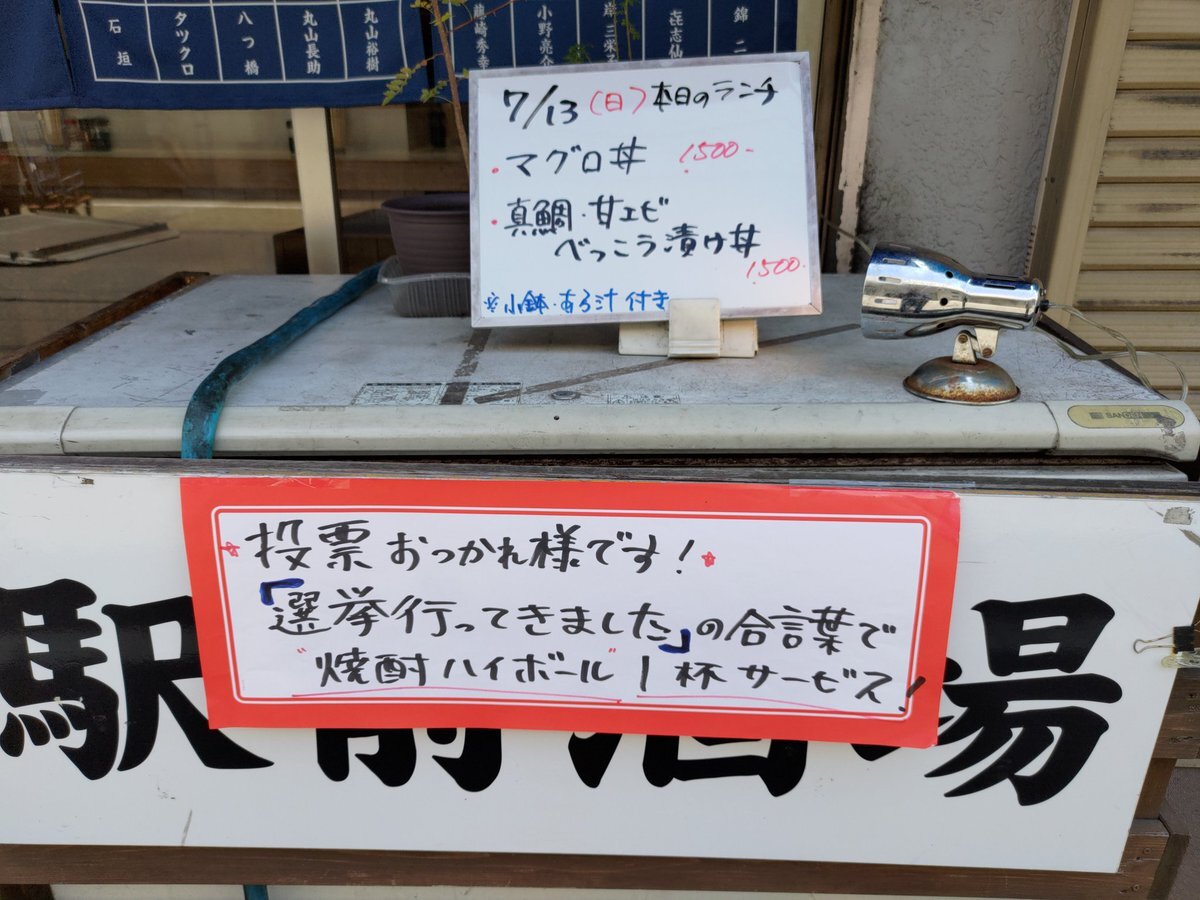 丸山裕樹
丸山長助
八つ橋
タツクロ
石垣
7/13(日)本日のランチ
・マグロ丼 1500-
・真鯛・甘エビ
べっこう漬け丼
1500-
※小鉢・あら汁付き
投票おつかれ様です!
「選挙行ってきました」の合言葉で
"焼酎ハイボール"1杯サービス!
駅前酒場